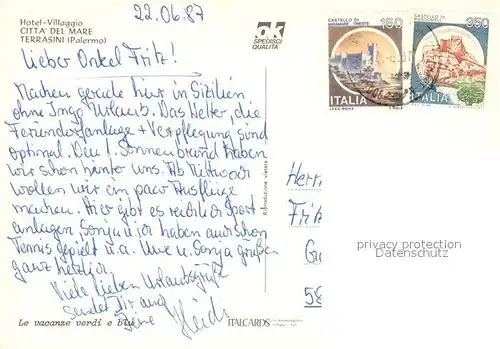 22.06.87
Hotel-Villaggio
CITTA' DEL MARE
TERRASINI (Palermo)
SPEDISCI
QUALITA'
CASTELLO DI
MIRAMARE · TRIESTE
150
350
ITALIA
ITALIA
Lieber Onkel Fritz!
Machen gerade hier in Sizilien
ohne Ingo Urlaub. Das Wetter, die
Ferienanlage + Verpflegung sind
optimal. Den 1. Sonnenbrand haben
wir schon hinter uns. Ab Mittwoch
wollen wir ein paar Ausflüge
machen. Hier gibt es reichlich Sport-
anlagen Sonja u. ich haben auch schon
Tennis gespielt u.a. Uwe u. Sonja grüßen
ganz herzlich.
Viele lieben Urlaubsgrüße
sendet Dir auch
Deine Heidi
Riproduzione vietata
Herrn
Fritz
58
privacy protection
Datenschutz
Le vacanze verdi e blu
ITALCARDS